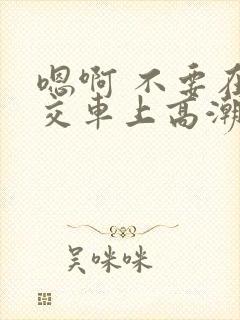 嗯啊 不要在
交车上高潮
吴咪咪